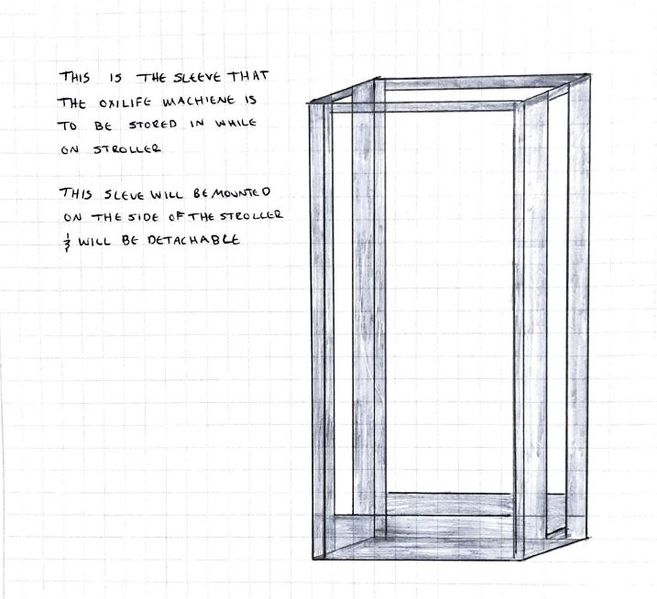 THIS IS THE SLEEVE THAT
THE OXILIFE MACHIENE IS
TO BE STORED IN WHILE
ON STROLLER
THIS SLEVE WILL BE MOUNTED
ON THE SIDE OF THE STROLLER
& WILL BE DETACHABLE